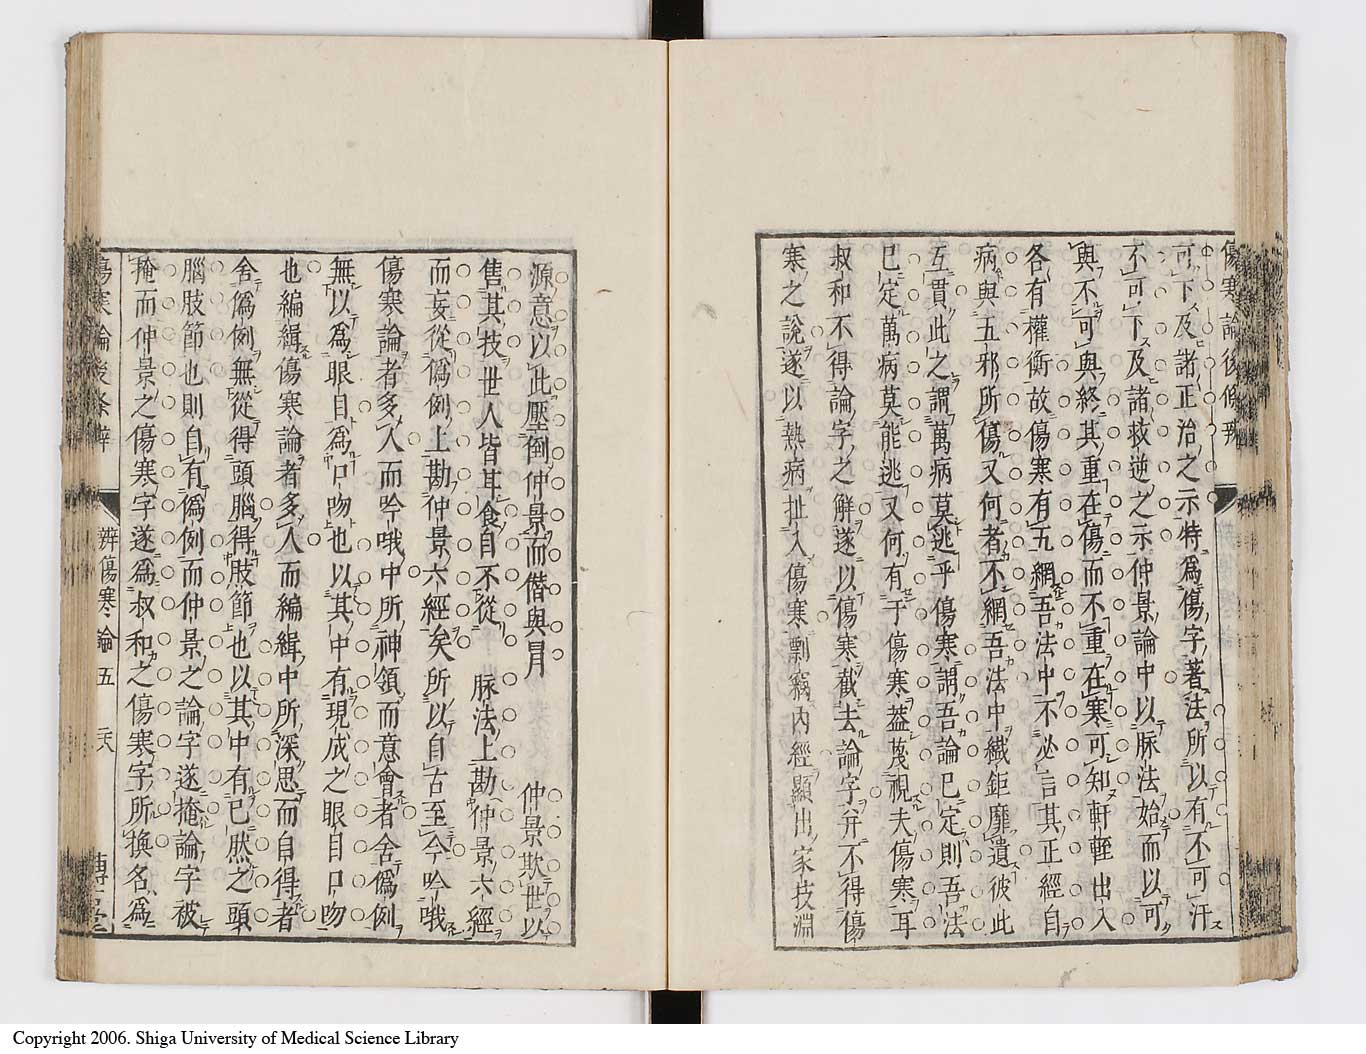 傷寒論後條辨
可下及諸正治之示特爲傷字著法所以有不可汗
不可下及諸救逆之示仲景論中以脈法始而以可
與不可與終其重在傷而不重在寒可知軒輊出入
各有權衡故傷寒有五網吾法中不必言其正經自
病與五邪所傷又何者不網吾法中纖鉅靡遺彼此
互貫此之謂萬病莫逃乎傷寒謂吾論已定則吾法
已定萬病莫能逃又何有于傷寒葢蔑視夫傷寒耳
叔和不得論字之解遂以傷寒截去論字并不得傷
寒之說遂以熱病扯入傷寒剽竊內經顯出家技淵
源意以此壓倒仲景而僭與冒 仲景欺世以
售其技世人皆耳食自不從 脉法上勘仲景六經
而妄從僞例上勘仲景六經矣所以自古至今吟哦
傷寒論者多人而吟哦中所神領而意會者舍僞例
無以爲眼目爲口吻也以其中有現成之眼目口吻
也編緝傷寒論者多人而編緝中所深思而自得者
舍僞例無從得頭腦得肢節也以其中有已然之頭
腦肢節也則自有僞例而仲景之論字遂掩論字被
掩而仲景之傷寒字遂爲叔和之傷寒字所換名爲
傷寒論後條辨 辨傷寒論五 六
Copyright 2006. Shiga University of Medical Science Library